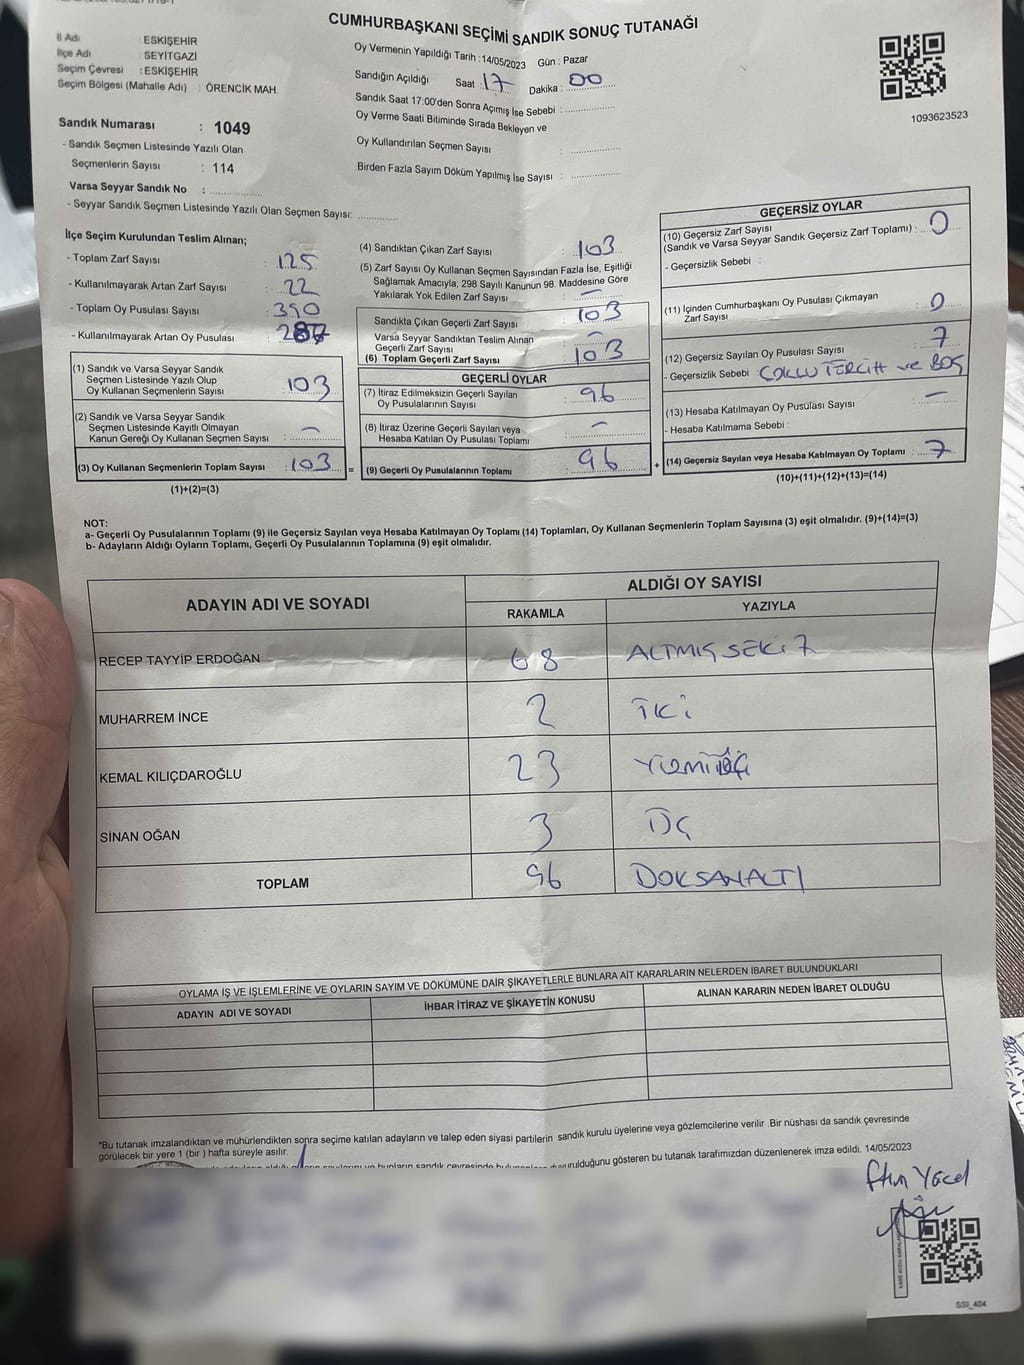 CUMHURBAŞKANI SEÇİMİ SANDIK SONUÇ TUTANAĞI
İl Adı : ESKİŞEHİR
İlçe Adı : SEYİTGAZİ
Seçim Çevresi : ESKİŞEHİR
Seçim Bölgesi (Mahalle Adı) : ÖRENCİK MAH.
Oy Vermenin Yapıldığı Tarih :14/05/2023 Gün : Pazar
Sandığın Açıldığı Saat : 17 Dakika : 00
Sandık Saat 17:00'den Sonra Açımış İse Sebebi :
Oy Verme Saati Bitiminde Sırada Bekleyen ve
Oy Kullandırılan Seçmen Sayısı :
Birden Fazla Sayım Döküm Yapılmış İse Sayısı :
1093623523
Sandık Numarası : 1049
- Sandık Seçmen Listesinde Yazılı Olan
Seçmenlerin Sayısı : 114
Varsa Seyyar Sandık No :
- Seyyar Sandık Seçmen Listesinde Yazılı Olan Seçmen Sayısı:
İlçe Seçim Kurulundan Teslim Alınan;
- Toplam Zarf Sayısı : 125
- Kullanılmayarak Artan Zarf Sayısı : 22
- Toplam Oy Pusulası Sayısı : 390
- Kullanılmayarak Artan Oy Pusulası : 287
(1) Sandık ve Varsa Seyyar Sandık
Seçmen Listesinde Yazılı Olup
Oy Kullanan Seçmenlerin Sayısı : 103
(2) Sandık ve Varsa Seyyar Sandık
Seçmen Listesinde Kayıtlı Olmayan
Kanun Gereği Oy Kullanan Seçmen Sayısı : –
(3) Oy Kullanan Seçmenlerin Toplam Sayısı : 103 =
(1)+(2)=(3)
(4) Sandıktan Çıkan Zarf Sayısı : 103
(5) Zarf Sayısı Oy Kullanan Seçmen Sayısından Fazla İse, Eşitliği
Sağlamak Amacıyla; 298 Sayılı Kanunun 98. Maddesine Göre
Yakılarak Yok Edilen Zarf Sayısı : –
Sandıkta Çıkan Geçerli Zarf Sayısı : 103
Varsa Seyyar Sandıktan Teslim Alınan
Geçerli Zarf Sayısı : –
(6) Toplam Geçerli Zarf Sayısı : 103
GEÇERLİ OYLAR
(7) İtiraz Edilmeksizin Geçerli Sayılan
Oy Pusulalarının Sayısı : 96
(8) İtiraz Üzerine Geçerli Sayılan veya
Hesaba Katılan Oy Pusulası Toplamı : –
(9) Geçerli Oy Pusulalarının Toplamı : 96 +
GEÇERSİZ OYLAR
(10) Geçersiz Zarf Sayısı
(Sandık ve Varsa Seyyar Sandık Geçersiz Zarf Toplamı) : 0
- Geçersizlik Sebebi :
(11) İçinden Cumhurbaşkanı Oy Pusulası Çıkmayan
Zarf Sayısı : 0
(12) Geçersiz Sayılan Oy Pusulası Sayısı : 7
- Geçersizlik Sebebi ÇOKLU TERCİH ve BOŞ
(13) Hesaba Katılmayan Oy Pusulası Sayısı : –
- Hesaba Katılmama Sebebi :
(14) Geçersiz Sayılan veya Hesaba Katılmayan Oy Toplamı : 7
(10)+(11)+(12)+(13)=(14)
NOT:
a- Geçerli Oy Pusulalarının Toplamı (9) ile Geçersiz Sayılan veya Hesaba Katılmayan Oy Toplamı (14) Toplamları, Oy Kullanan Seçmenlerin Toplam Sayısına (3) eşit olmalıdır. (9)+(14)=(3)
b- Adayların Aldığı Oyların Toplamı, Geçerli Oy Pusulalarının Toplamına (9) eşit olmalıdır.
ADAYIN ADI VE SOYADI
ALDIĞI OY SAYISI
RAKAMLA YAZIYLA
RECEP TAYYİP ERDOĞAN 68 ALTMIŞ SEKİZ
MUHARREM İNCE 2 İKİ
KEMAL KILIÇDAROĞLU 23 YİRMİÜÇ
SİNAN OĞAN 3 ÜÇ
TOPLAM 96 DOKSANALTI
OYLAMA İŞ VE İŞLEMLERİNE VE OYLARIN SAYIM VE DÖKÜMÜNE DAİR ŞİKAYETLERLE BUNLARA AİT KARARLARIN NELERDEN İBARET BULUNDUKLARI
ADAYIN ADI VE SOYADI İHBAR İTİRAZ VE ŞİKAYETİN KONUSU ALINAN KARARIN NEDEN İBARET OLDUĞU
*Bu tutanak imzalandıktan ve mühürlendikten sonra seçime katılan adayların ve talep eden siyasi partilerin sandık kurulu üyelerine veya gözlemcilerine verilir .Bir nüshası da sandık çevresinde
görülecek bir yere 1 (bir ) hafta süreyle asılır.
duyurulduğunu gösteren bu tutanak tarafımızdan düzenlenerek imza edildi. 14/05/2023
SSI_404